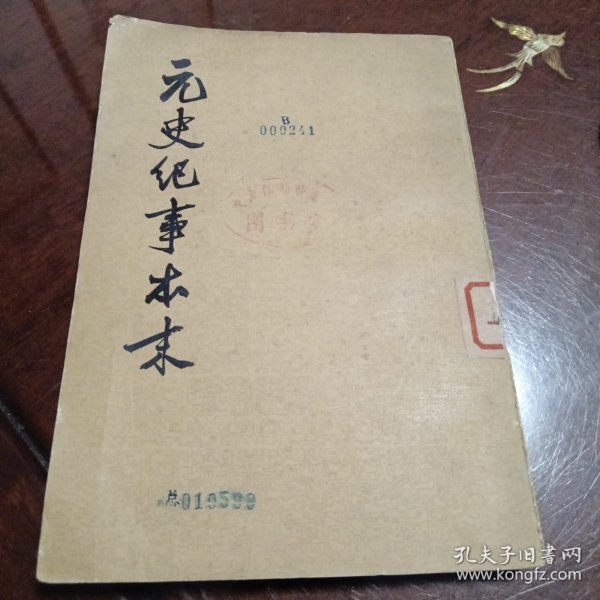 元史纪事本末
B
000241
图书室
总019599
孔夫子旧書网
www.kongfz.com